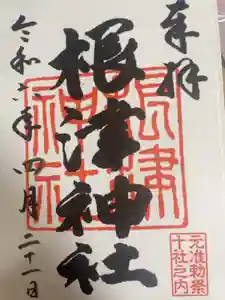 奉拝
根津神社
根津神社
元准勅祭
十社之内
令和六年四月二十一日